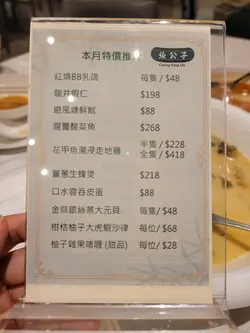 本月特價推介
張公子
Cheung Kung Tsz
紅燒BB乳鴿 每隻 / $48
龍井蝦仁 $198
避風塘鮮魷 $88
羅蔔酸菜魚 $268
花甲魚湯浸走地雞 半隻 / $228
全隻 / $418
薑蔥生蠔煲 $218
口水雲吞皮蛋 $88
金蒜銀絲蒸大元貝 每隻 / $48
柑桔柚子大虎蝦沙律 每位 / $68
柚子雜果啫喱 (甜品) 每位 / $28